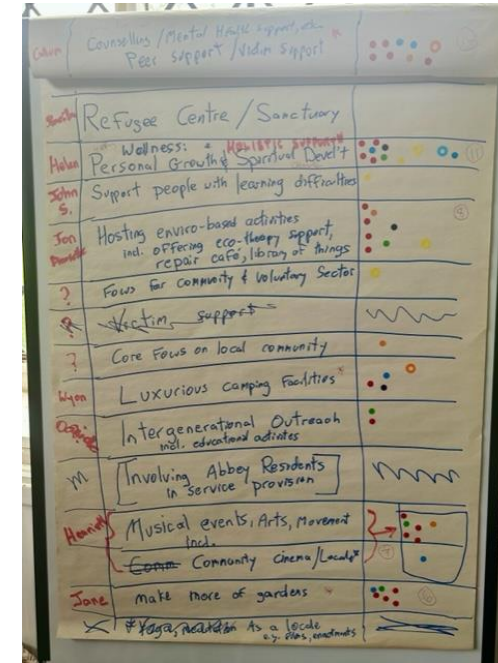 Counselling / Mental Health support,
Peer support / Victim Support
Refugee Centre / Sanctuary
Helen
Wellness: & HOLISTIC SUPPORT
Personal Growth & Spiritual Devel't
John
S.
Support people with learning difficulties
Jon
Hosting enviro-based activities
incl. offering eco-therapy support,
repair café, library of things
?
Focus for community & voluntary sector
?
Victim support
?
Core Focus on local community
Wyon
Luxurious Camping Facilities*
Intergenerational Outreach
incl. educational activities
[Involving Abbey Residents
in service provision]
Musical events, Arts, Movement
incl.
Comm Community cinema / Locale*
Jane
make more of gardens
As a locale